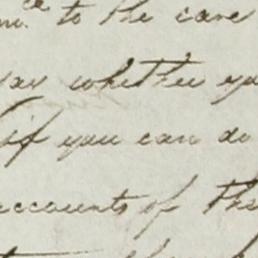 to the care
whether yo
if you can do
accounts of the